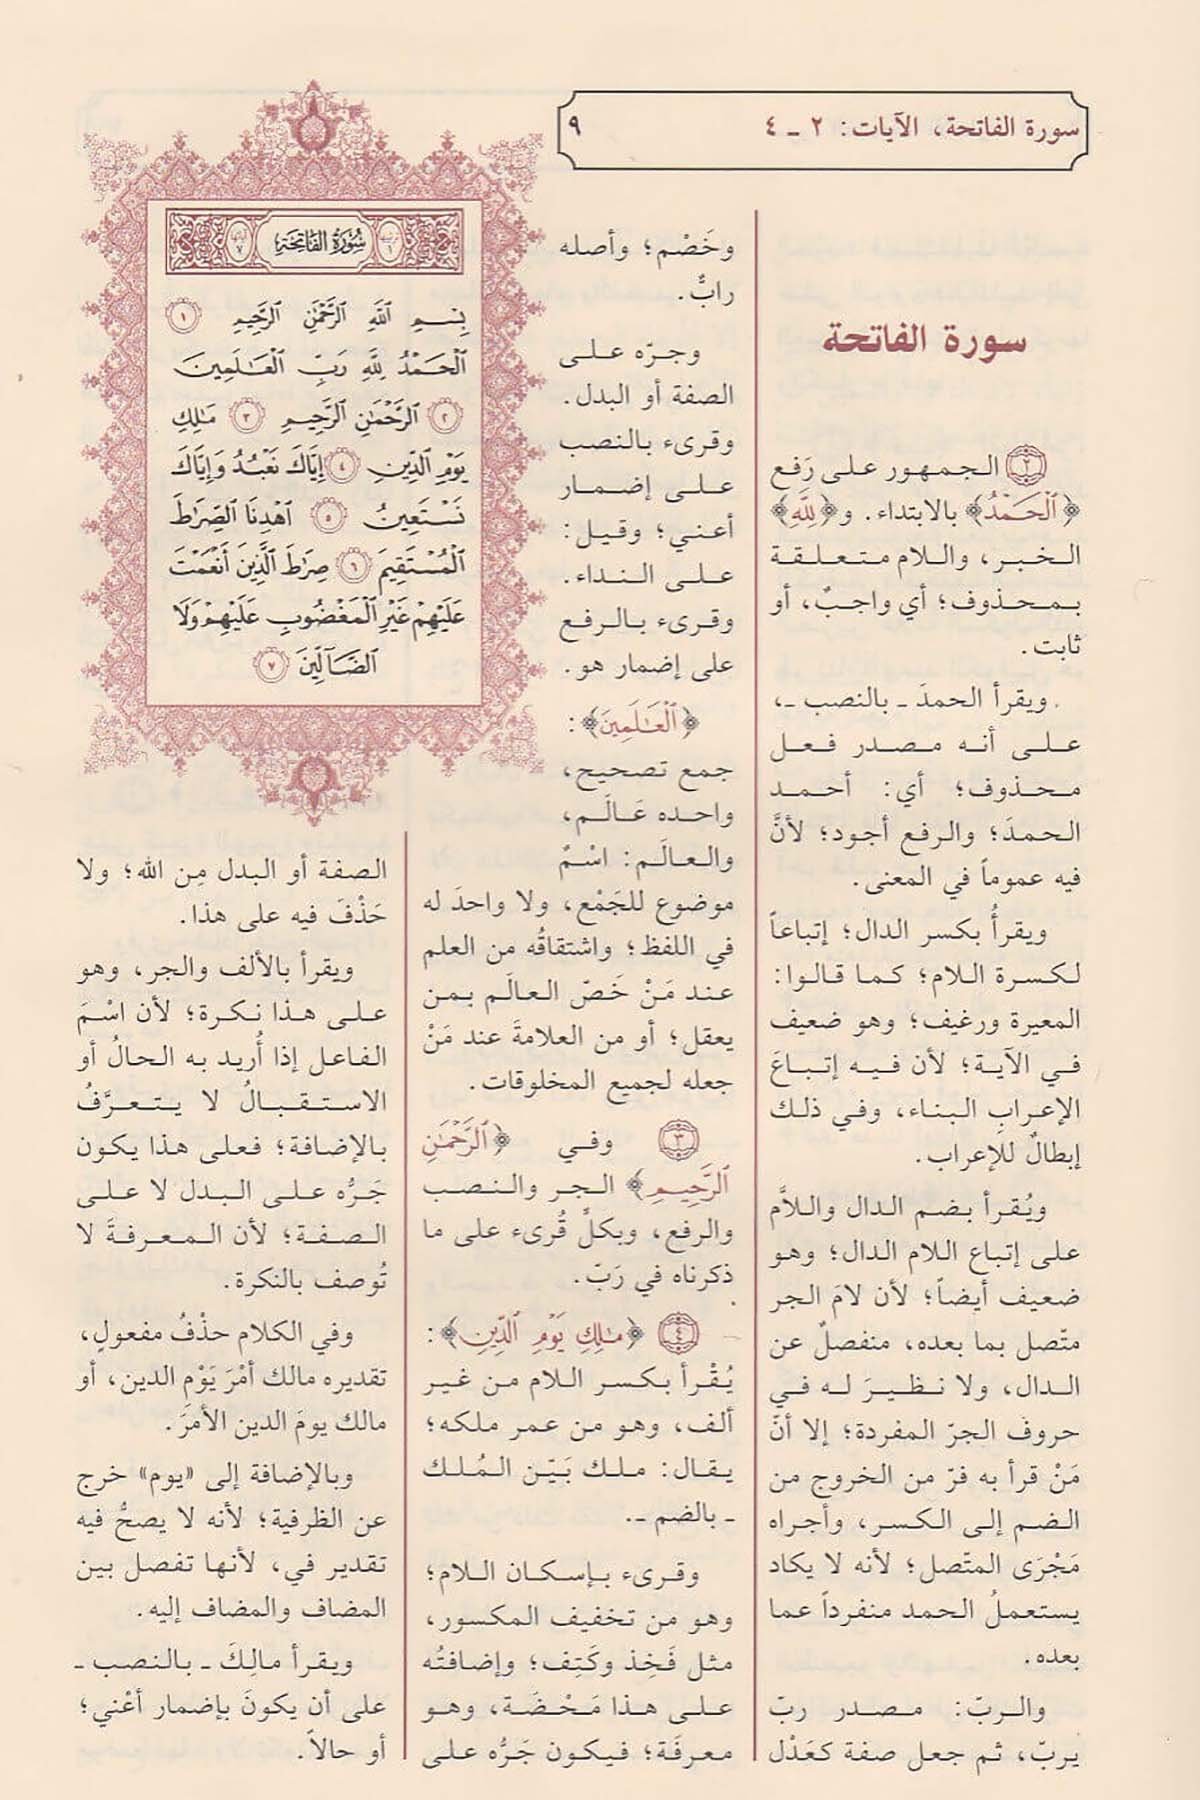 سورة الفاتحة، الآيات: ٢ ـ ٤
٩
سُورَةُ الفَاتِحَةِ
بِسْمِ ٱللَّهِ ٱلرَّحْمَٰنِ ٱلرَّحِيمِ ١
ٱلْحَمْدُ لِلَّهِ رَبِّ ٱلْعَٰلَمِينَ
٢ ٱلرَّحْمَٰنِ ٱلرَّحِيمِ ٣ مَٰلِكِ
يَوْمِ ٱلدِّينِ ٤ إِيَّاكَ نَعْبُدُ وَإِيَّاكَ
نَسْتَعِينُ ٥ ٱهْدِنَا ٱلصِّرَٰطَ
ٱلْمُسْتَقِيمَ ٦ صِرَٰطَ ٱلَّذِينَ أَنْعَمْتَ
عَلَيْهِمْ غَيْرِ ٱلْمَغْضُوبِ عَلَيْهِمْ وَلَا
ٱلضَّآلِّينَ ٧
سورة الفاتحة
٢ الجمهور على رَفع
﴿ٱلْحَمْدُ﴾ بالابتداء. و﴿لِلَّهِ﴾
الخبر، واللام متعلقة
بمحذوف؛ أي واجبٌ، أو
ثابت.
ويقرأ الحمدَ ـ بالنصب ـ،
على أنه مصدر فعل
محذوف؛ أي: أحمد
الحمدَ؛ والرفع أجود؛ لأنَّ
فيه عموماً في المعنى.
ويقرأُ بكسر الدال؛ إتباعاً
لكسرة اللام؛ كما قالوا:
المعيرة ورغيف؛ وهو ضعيف
في الآية؛ لأن فيه إتباعَ
الإعرابِ البناء، وفي ذلك
إبطالٌ للإعراب.
ويُقرأ بضم الدال واللاَّم
على إتباع اللام الدال؛ وهو
ضعيف أيضاً؛ لأن لامَ الجر
متّصل بما بعده، منفصلٌ عن
الدال، ولا نظيرَ له في
حروف الجرّ المفردة؛ إلا أنّ
مَنْ قرأ به فرّ من الخروج من
الضم إلى الكسر، وأجراه
مَجْرَى المتّصل؛ لأنه لا يكاد
يستعملُ الحمد منفرداً عما
بعده.
والربّ: مصدر ربّ
يربّ، ثم جعل صفة كعَدْل
وخَصْم؛ وأصله
رابٌّ.
وجرّه على
الصفة أو البدل.
وقرىء بالنصب
على إضمار
أعني؛ وقيل:
على النداء.
وقرىء بالرفع
على إضمار هو.
﴿ٱلْعَٰلَمِينَ﴾:
جمع تصحيح،
واحده عَالَم،
والعالَم: اسْمٌ
موضوع للجَمْع، ولا واحدَ له
في اللفظ؛ واشتقاقُه من العلم
عند مَنْ خَصّ العالَم بمن
يعقل؛ أو من العلامةَ عند مَنْ
جعله لجميع المخلوقات.
٣ وفي ﴿ٱلرَّحْمَٰنِ
ٱلرَّحِيمِ﴾ الجر والنصب
والرفع، وبكلٍّ قُرىء على ما
ذكرناه في رَبّ.
٤ ﴿مَٰلِكِ يَوْمِ ٱلدِّينِ﴾:
يُقْرأ بكسر اللام من غير
ألف، وهو من عمر ملكه؛
يقال: ملك بَيّن المُلك
ـ بالضم ـ.
وقرىء بإسكان اللام؛
وهو من تخفيف المكسور،
مثل فَخِذ وكَتِف؛ وإضافتُه
على هذا مَحْضَة، وهو
معرفَة؛ فيكون جَرُّه على
الصفة أو البدل مِن الله؛ ولا
حَذْفَ فيه على هذا.
ويقرأ بالألف والجر، وهو
على هذا نكرة؛ لأن اسْمَ
الفاعل إذا أُريد به الحالُ أو
الاستقبالُ لا يتعرَّفُ
بالإضافة؛ فعلى هذا يكون
جَرُّه على البدل لا على
الصفة؛ لأن المعرفةَ لا
تُوصف بالنكرة.
وفي الكلام حذْفُ مفعولٍ،
تقديره مالك أمْرَ يَوْمِ الدين، أو
مالك يومَ الدين الأمرَ.
وبالإضافة إلى «يوم» خرج
عن الظرفية؛ لأنه لا يصحُّ فيه
تقدير في، لأنها تفصل بين
المضاف والمضاف إليه.
ويقرأ مالِكَ ـ بالنصب ـ
على أن يكونَ بإضمار أعْني؛
أو حالاً.